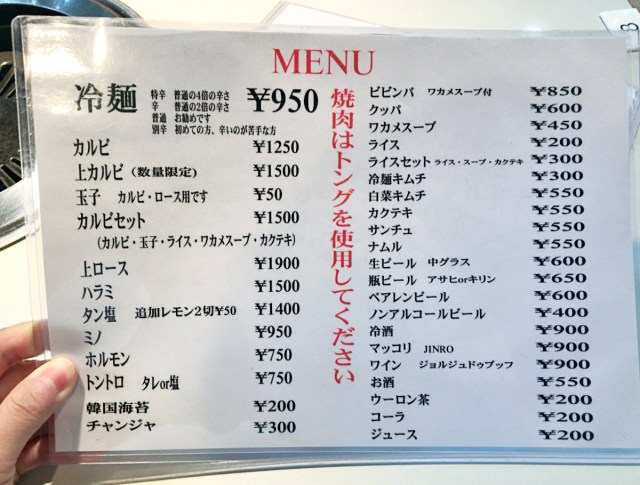 MENU
冷麺 ¥950
特辛 普通の4倍の辛さ
辛 普通の2倍の辛さ
普通 お勧めです
別辛 初めての方、辛いのが苦手な方
カルビ ¥1250
上カルビ(数量限定) ¥1500
玉子 カルビ・ロース用です ¥50
カルビセット ¥1500
(カルビ・玉子・ライス・ワカメスープ・カクテキ)
上ロース ¥1900
ハラミ ¥1500
タン塩 追加レモン2切¥50 ¥1400
ミノ ¥950
ホルモン ¥750
トントロ タレor塩 ¥750
韓国海苔 ¥200
チャンジャ ¥300
焼肉はトングを使用してください
ビビンバ ワカメスープ付 ¥850
クッパ ¥600
ワカメスープ ¥450
ライス ¥200
ライスセット ライス・スープ・カクテキ ¥300
冷麺キムチ ¥300
白菜キムチ ¥550
カクテキ ¥550
サンチュ ¥550
ナムル ¥550
生ビール 中グラス ¥600
瓶ビール アサヒorキリン ¥650
ベアレンビール ¥600
ノンアルコールビール ¥400
冷酒 ¥900
マッコリ JINRO ¥900
ワイン ジョルジュドゥブッフ ¥900
お酒 ¥550
ウーロン茶 ¥200
コーラ ¥200
ジュース ¥200